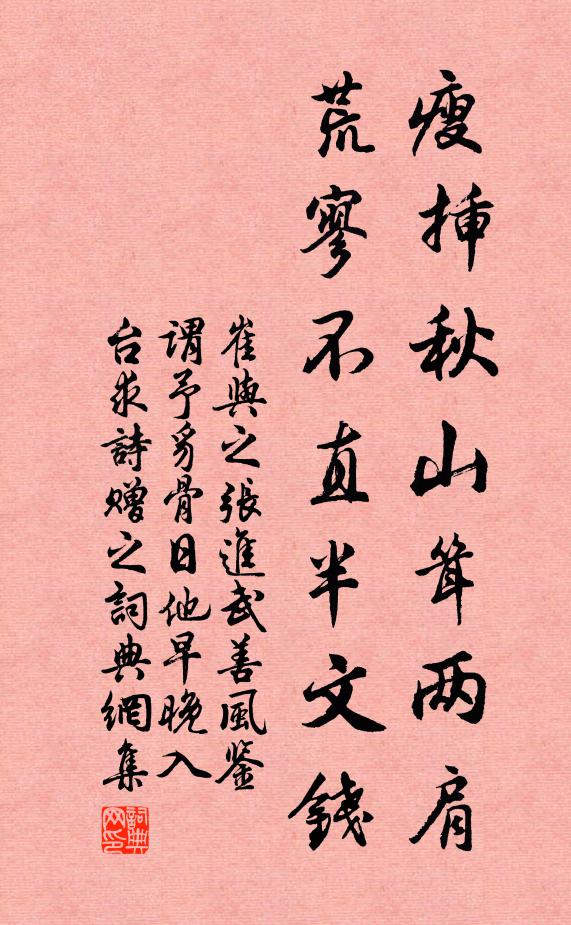 瘦挿秋山耸两肩
荒寥不直半文錢
崔與之張進武善風鑒
謂予豸骨日他早晚入
台求詩贈之詞典網集
詞典网印